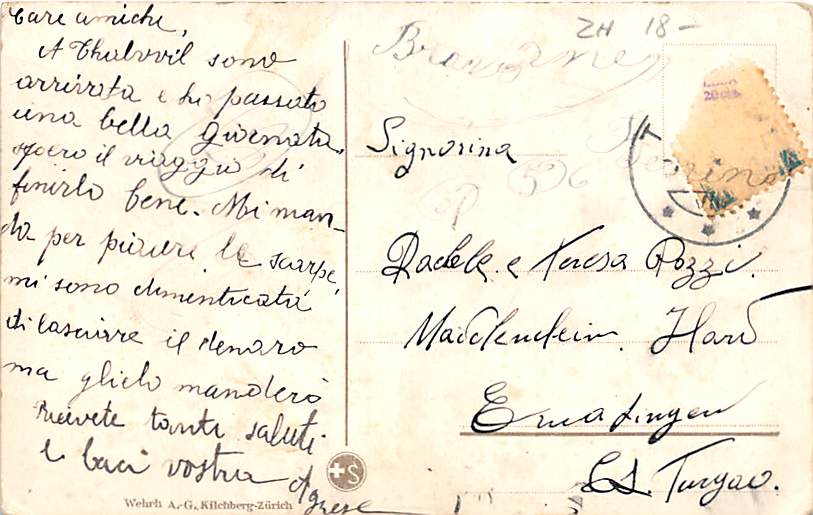 Care amiche,
A Thalwil sono
arrivata e ho passato
una bella giornata.
spero il viaggio di
finirlo bene. Mi man-
da per piacere le scarpe,
mi sono dimenticata
di lasciare il denaro
ma glielo manderò
Ricevete tante saluti
e baci vostra Agnese
Wehrli A.-G., Kilchberg-Zürich
+S
ZH 18-
Signorina
Radele e Teresa Pozzi.
Mädchenheim Hard
Ermatingen
Ct. Turgau.